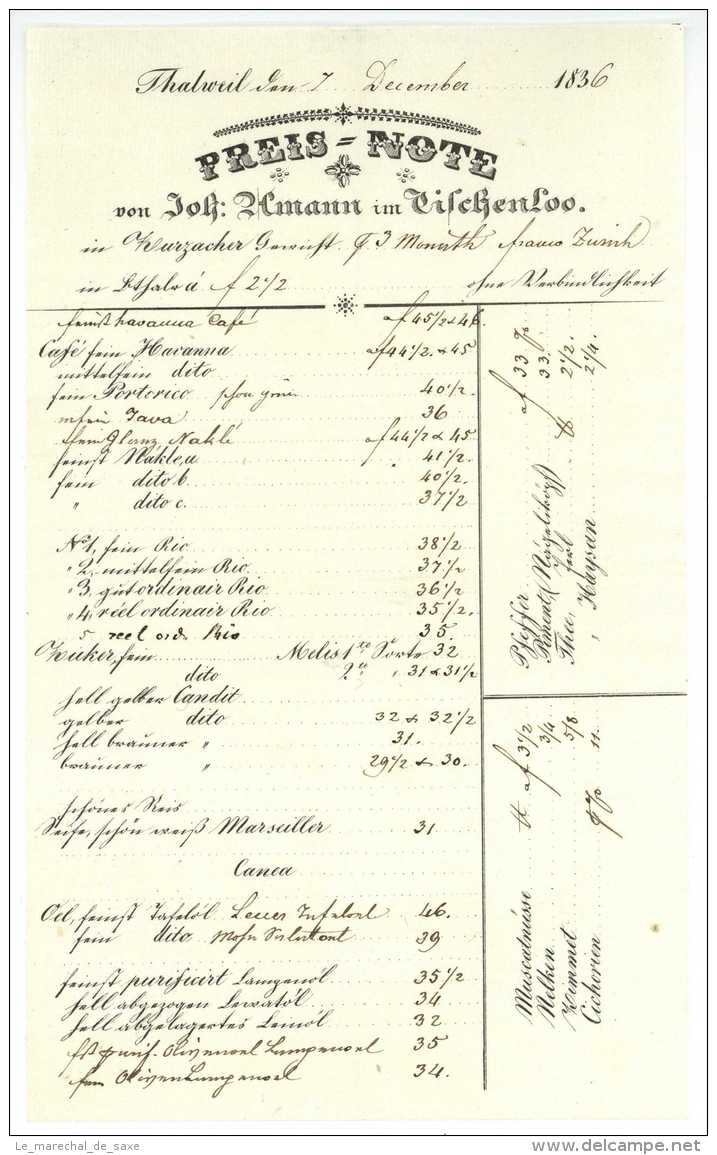 Thalweil den 7 December 1836
PREIS=NOTE
von Joh: Amann im Tischenloo.
in Zurzacher Gewicht, 3 Monath franco Zürich
in Bthalr à f 2 1/2 ohne Verbindlichkeit
feinst havanna Café f 45 1/2 & 46.
Café fein Havanna f 44 1/2 & 45
mittelfein dito
fein Portorico schön grün 40 1/2.
mfein Java 36
fein Glanz Naklé f 44 1/2 & 45
feinst Nákle, a 41 1/2.
fein dito b. 40 1/2.
" dito c. 37 1/2
No 1, fein Rio 38 1/2
" 2, mittelfein Rio 37 1/2
" 3, gut ordinair Rio 36 1/2
" 4, réel ordinair Rio 35 1/2.
5 reel ord Rio 35.
Zucker, fein Melis 1te Sorte 32
dito 2te " 31 & 31 1/2
hell gelber Candit
gelber dito 32 & 32 1/2
hell brauner " 31.
brauner " 29 1/2 & 30.
schönes Reis
Seife, schön weiß Marseiller 31
Canea
Oel, feinst Tafelöl 46.
fein dito 39
feinst purificirt Lampenöl 35 1/2
hell abgezogen Lewatöl 34
hell abgelagertes Leinöl 32
fst purif. Olivenoel Lampenoel 35
fein OlivenLampenoel 34.
Pfeffer f 33
Piment, (Nägelikopf) 33.
Thee, 2 1/2.
" Haysan 2 1/4.
Muscatnüsse f 3 1/2
Nelken 3/4
Zimmet 5/8
Cichorien 11.
Le_marechal_de_saxe
www.delcampe.net